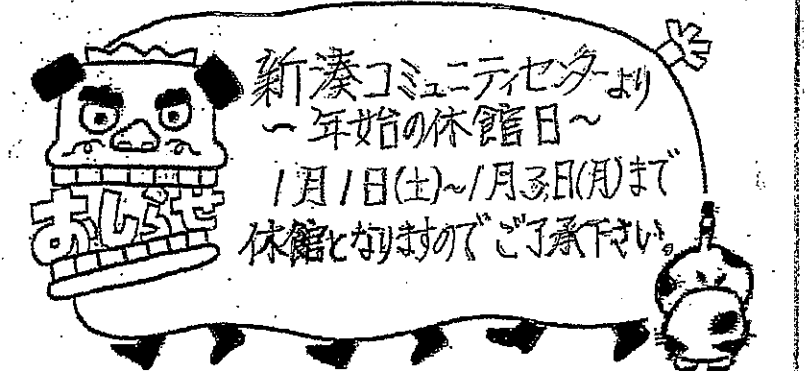 おしらせ
新湊コミュニティセンターより
～年始の休館日～
1月1日(土)～1月3日(月)まで
休館となりますのでご了承下さい。